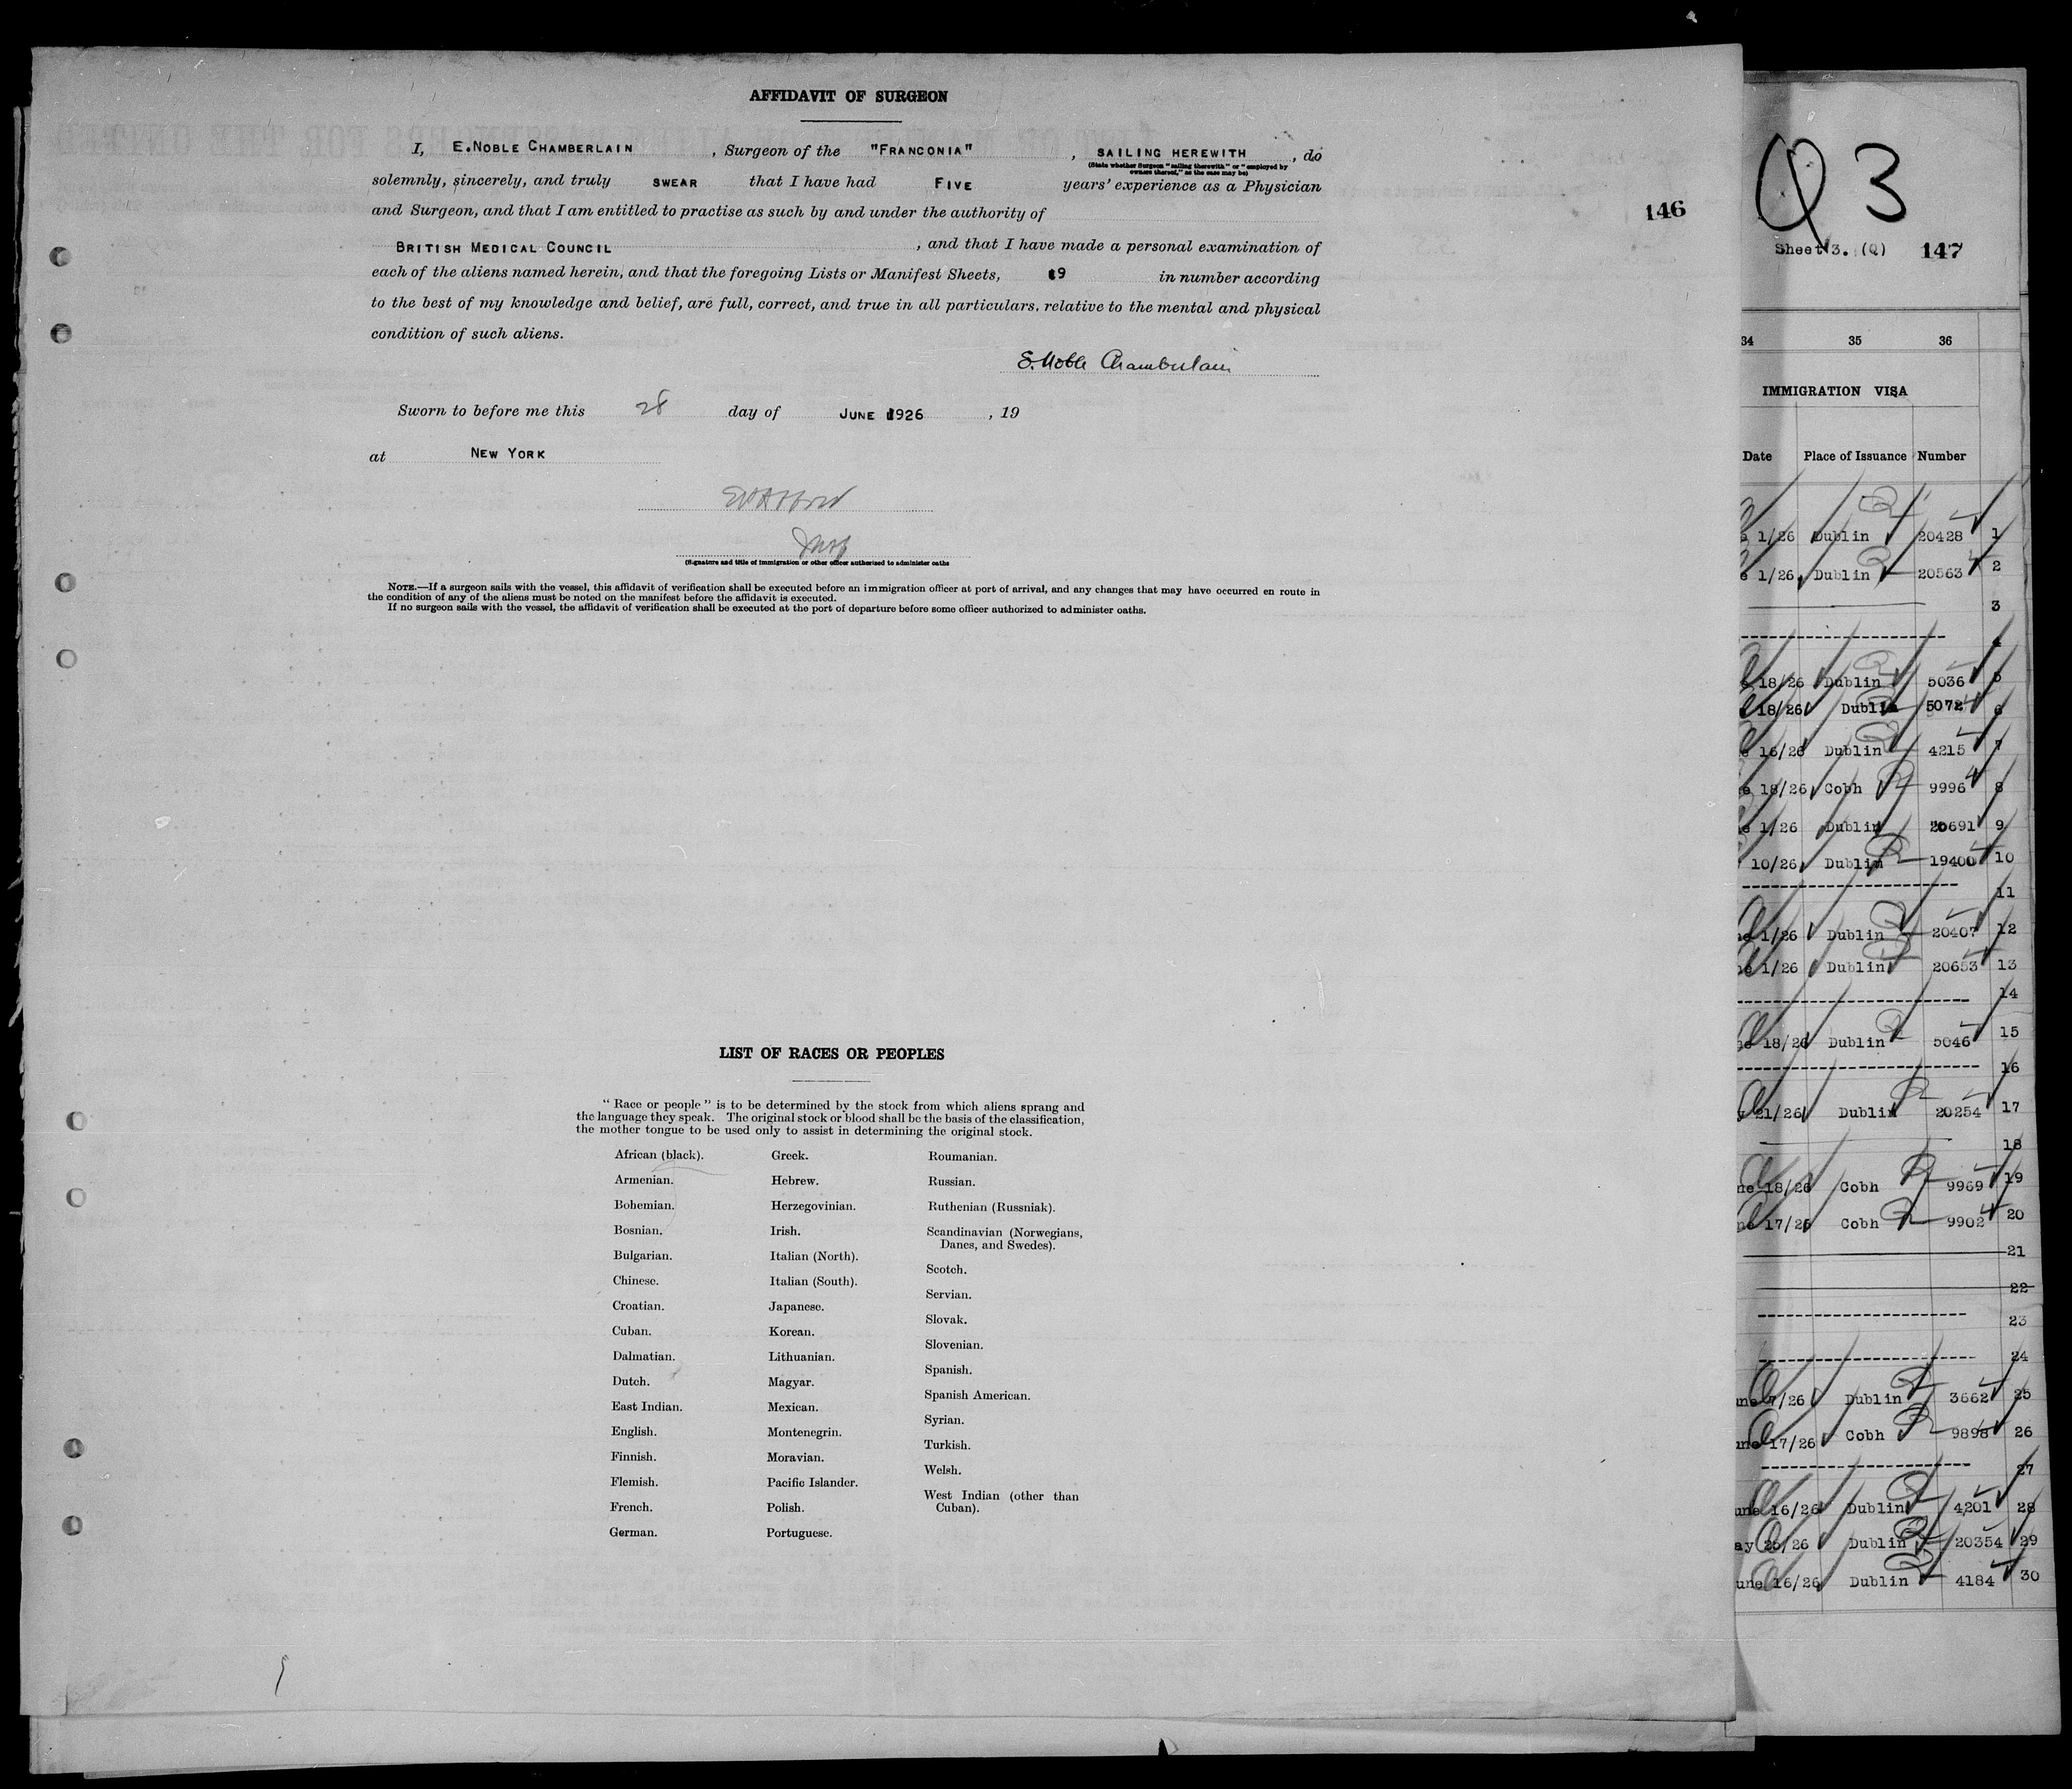 AFFIDAVIT OF SURGEON
I, E.NOBLE CHAMBERLAIN , Surgeon of the "FRANCONIA" , SAILING HEREWITH , do
(State whether Surgeon "sailing therewith" or "employed by
owners thereof," as the case may be)
solemnly, sincerely, and truly SWEAR that I have had FIVE years' experience as a Physician
and Surgeon, and that I am entitled to practise as such by and under the authority of
BRITISH MEDICAL COUNCIL , and that I have made a personal examination of
each of the aliens named herein, and that the foregoing Lists or Manifest Sheets, 19 in number according
to the best of my knowledge and belief, are full, correct, and true in all particulars, relative to the mental and physical
condition of such aliens.
E. Noble Chamberlain
Sworn to before me this 28 day of JUNE 1926 , 19
at NEW YORK
(Signature and title of immigration or other officer authorised to administer oaths
NOTE.—If a surgeon sails with the vessel, this affidavit of verification shall be executed before an immigration officer at port of arrival, and any changes that may have occurred en route in
the condition of any of the aliens must be noted on the manifest before the affidavit is executed.
If no surgeon sails with the vessel, the affidavit of verification shall be executed at the port of departure before some officer authorized to administer oaths.
146
LIST OF RACES OR PEOPLES
"Race or people" is to be determined by the stock from which aliens sprang and
the language they speak. The original stock or blood shall be the basis of the classification,
the mother tongue to be used only to assist in determining the original stock.
African (black).
Armenian.
Bohemian.
Bosnian.
Bulgarian.
Chinese.
Croatian.
Cuban.
Dalmatian.
Dutch.
East Indian.
English.
Finnish.
Flemish.
French.
German.
Greek.
Hebrew.
Herzegovinian.
Irish.
Italian (North).
Italian (South).
Japanese.
Korean.
Lithuanian.
Magyar.
Mexican.
Montenegrin.
Moravian.
Pacific Islander.
Polish.
Portuguese.
Roumanian.
Russian.
Ruthenian (Russniak).
Scandinavian (Norwegians,
Danes, and Swedes).
Scotch.
Servian.
Slovak.
Slovenian.
Spanish.
Spanish American.
Syrian.
Turkish.
Welsh.
West Indian (other than
Cuban).
Q 3
Sheet 3. (Q) 147
34 35 36
IMMIGRATION VISA
Date Place of Issuance Number
1/26 Dublin 20428 1
1/26 Dublin 20563 2
3
4
18/26 Dublin 5036 5
18/26 Dublin 5072 6
16/26 Dublin 4215 7
18/26 Cobh 9996 8
1/26 Dublin 20691 9
10/26 Dublin 19400 10
11
1/26 Dublin 20407 12
1/26 Dublin 20653 13
14
18/26 Dublin 5046 15
16
21/26 Dublin 20254 17
18
18/26 Cobh 9969 19
17/26 Cobh 9902 20
21
22
23
24
7/26 Dublin 3662 25
17/26 Cobh 9898 26
27
16/26 Dublin 4201 28
25/26 Dublin 20354 29
16/26 Dublin 4184 30